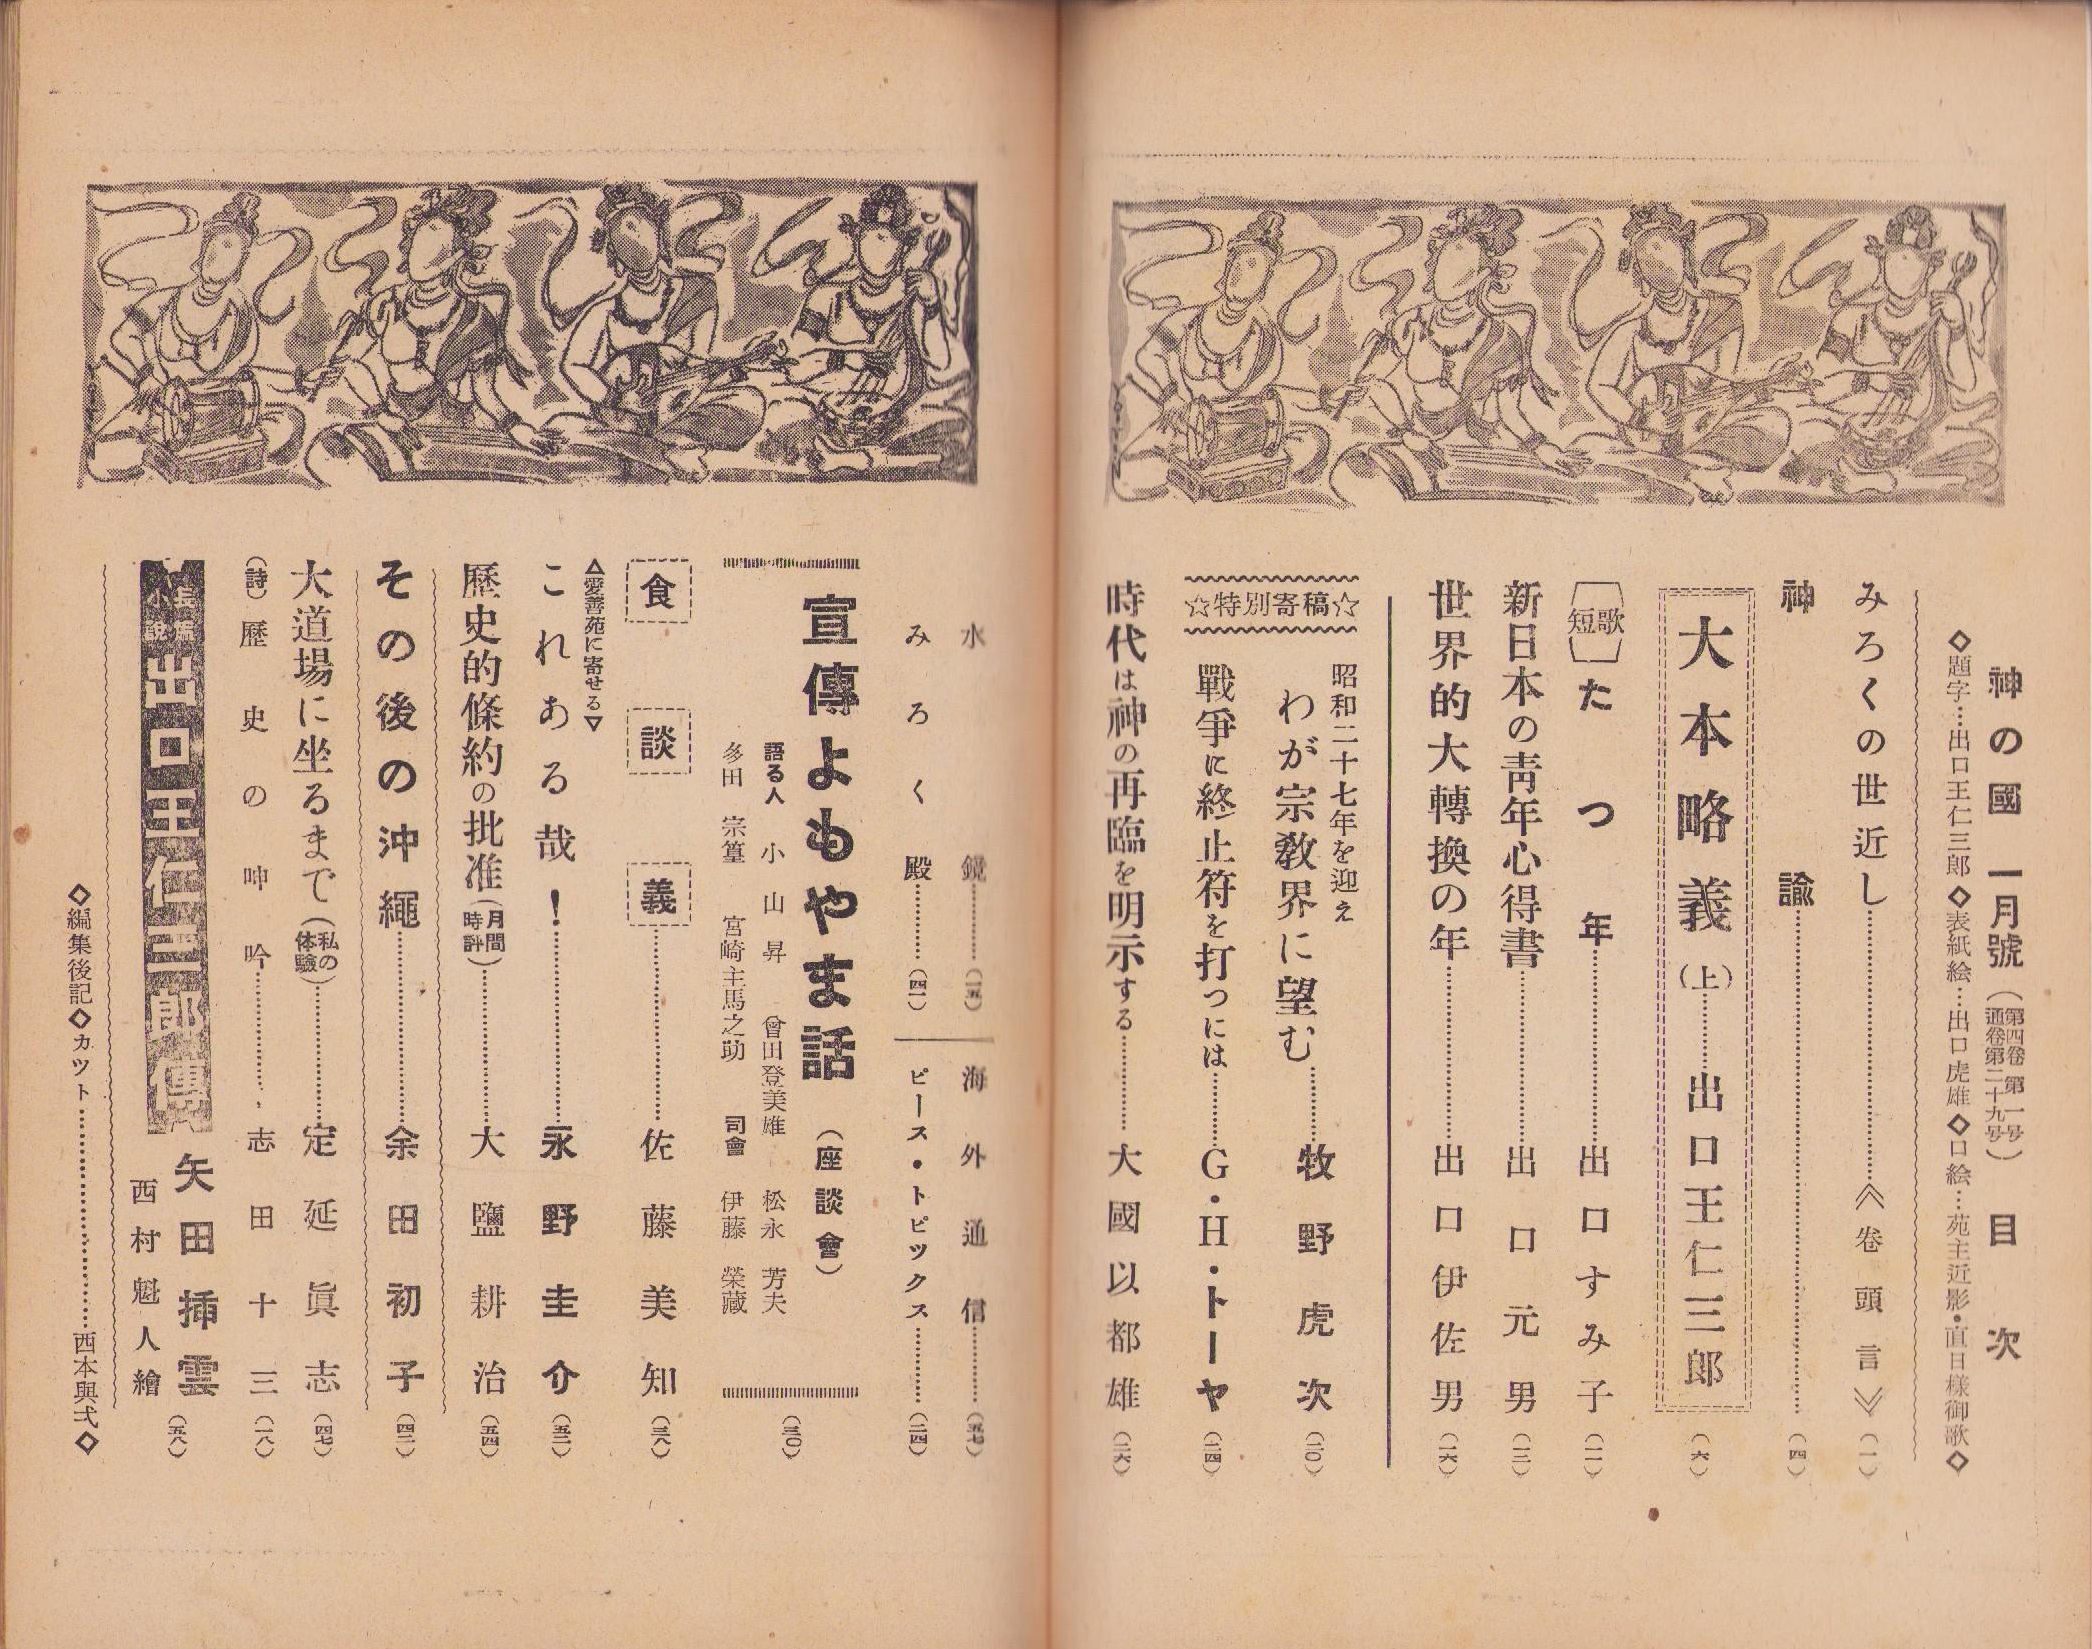 神の國 一月號 (第四卷 第一号 通卷第二十九号) 目次
◇題字…出口王仁三郎◇表紙絵…出口虎雄◇口絵…苑主近影・直日様御歌◇
みろくの世近し…………《卷頭言》(一)
神諭…………(四)
大本略義(上)……出口王仁三郎(六)
〔短歌〕たつ年…………出口すみ子(一一)
新日本の靑年心得書…………出口元男(一二)
世界的大轉換の年…………出口伊佐男(一六)
☆特別寄稿☆
昭和二十七年を迎え
わが宗敎界に望む……牧野虎次(二〇)
戰爭に終止符を打つには……G・H・トーヤ(二四)
時代は神の再臨を明示する…………大國以都雄(二六)
水鏡…………(一五)
海外通信…………(五七)
みろく殿…………(四一)
ピース・トピックス…………(二四)
宣傳よもやま話(座談會)(三〇)
語る人 小山昇 會田登美雄 松永芳夫
多田宗篁 宮崎主馬之助 司會 伊藤榮藏
食談義…………佐藤美知(三八)
▲愛善苑に寄せる▼
これある哉!…………永野圭介(五二)
歷史的條約の批准(月間時評)…………大鹽耕治(五四)
その後の沖繩…………余田初子(四二)
大道場に坐るまで(私の体驗)…………定延眞志(四七)
(詩)歷史の呻吟…………志田十三(一八)
長篇小說 出口王仁三郎傳 矢田挿雲(五八)
西村魁人繪
◇編集後記◇カット…………西本與弍◇